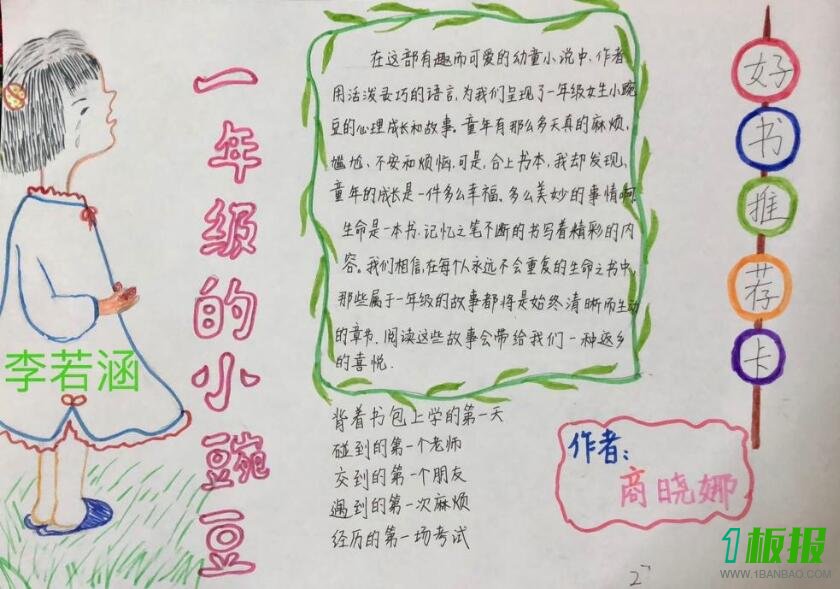 一年级的小豌豆
李若涵
在这部有趣而可爱的幼童小说中，作者
用活泼灵巧的语言，为我们呈现了一年级女生小豌
豆的心理成长和故事。童年有那么多天真的麻烦、
尴尬、不安和烦恼，可是，合上书本，我却发现，
童年的成长是一件多么幸福、多么美妙的事情啊
生命是一本书，记忆之笔不断的书写着精彩的内
容。我们相信，在每个人永远不会重复的生命之书中，
那些属于一年级的故事都将是始终清晰而生动
的章节。阅读这些故事会带给我们一种返乡
的喜悦.
背着书包上学的第一天
碰到的第一个老师
交到的第一个朋友
遇到的第一次麻烦
经历的第一场考试
好书推荐卡
作者：
商晓娜
1板报
WWW.1BANBAO.COM